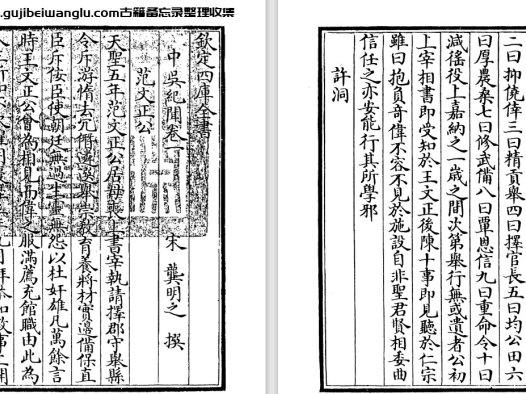 www.gujibeiwanglu.com古籍备忘录整理收集
欽定四庫全書
中吳紀聞卷一 宋 龔明之 撰
范文正公
天聖五年范文正公居母喪上書宰執請擇郡守舉縣
令斥游惰去冗僭遴選舉崇教育養將材實邊備保直
臣斥佞臣使朝廷無過生靈無怨以杜奸雄凡萬餘言
時王文正公曾為相見而偉之服滿薦充館職由此為
二曰抑僥倖三曰精貢舉四曰擇官長五曰均公田六
曰厚農桑七曰修武備八曰覃恩信九曰重命令十曰
減徭役上嘉納之一歲之間次第舉行無或遺者公初
上宰相書即受知於王文正後陳十事即見聽於仁宗
雖曰抱負奇偉不容不見於施設自非聖君賢相委曲
信任之亦安能行其所學邪
許洞